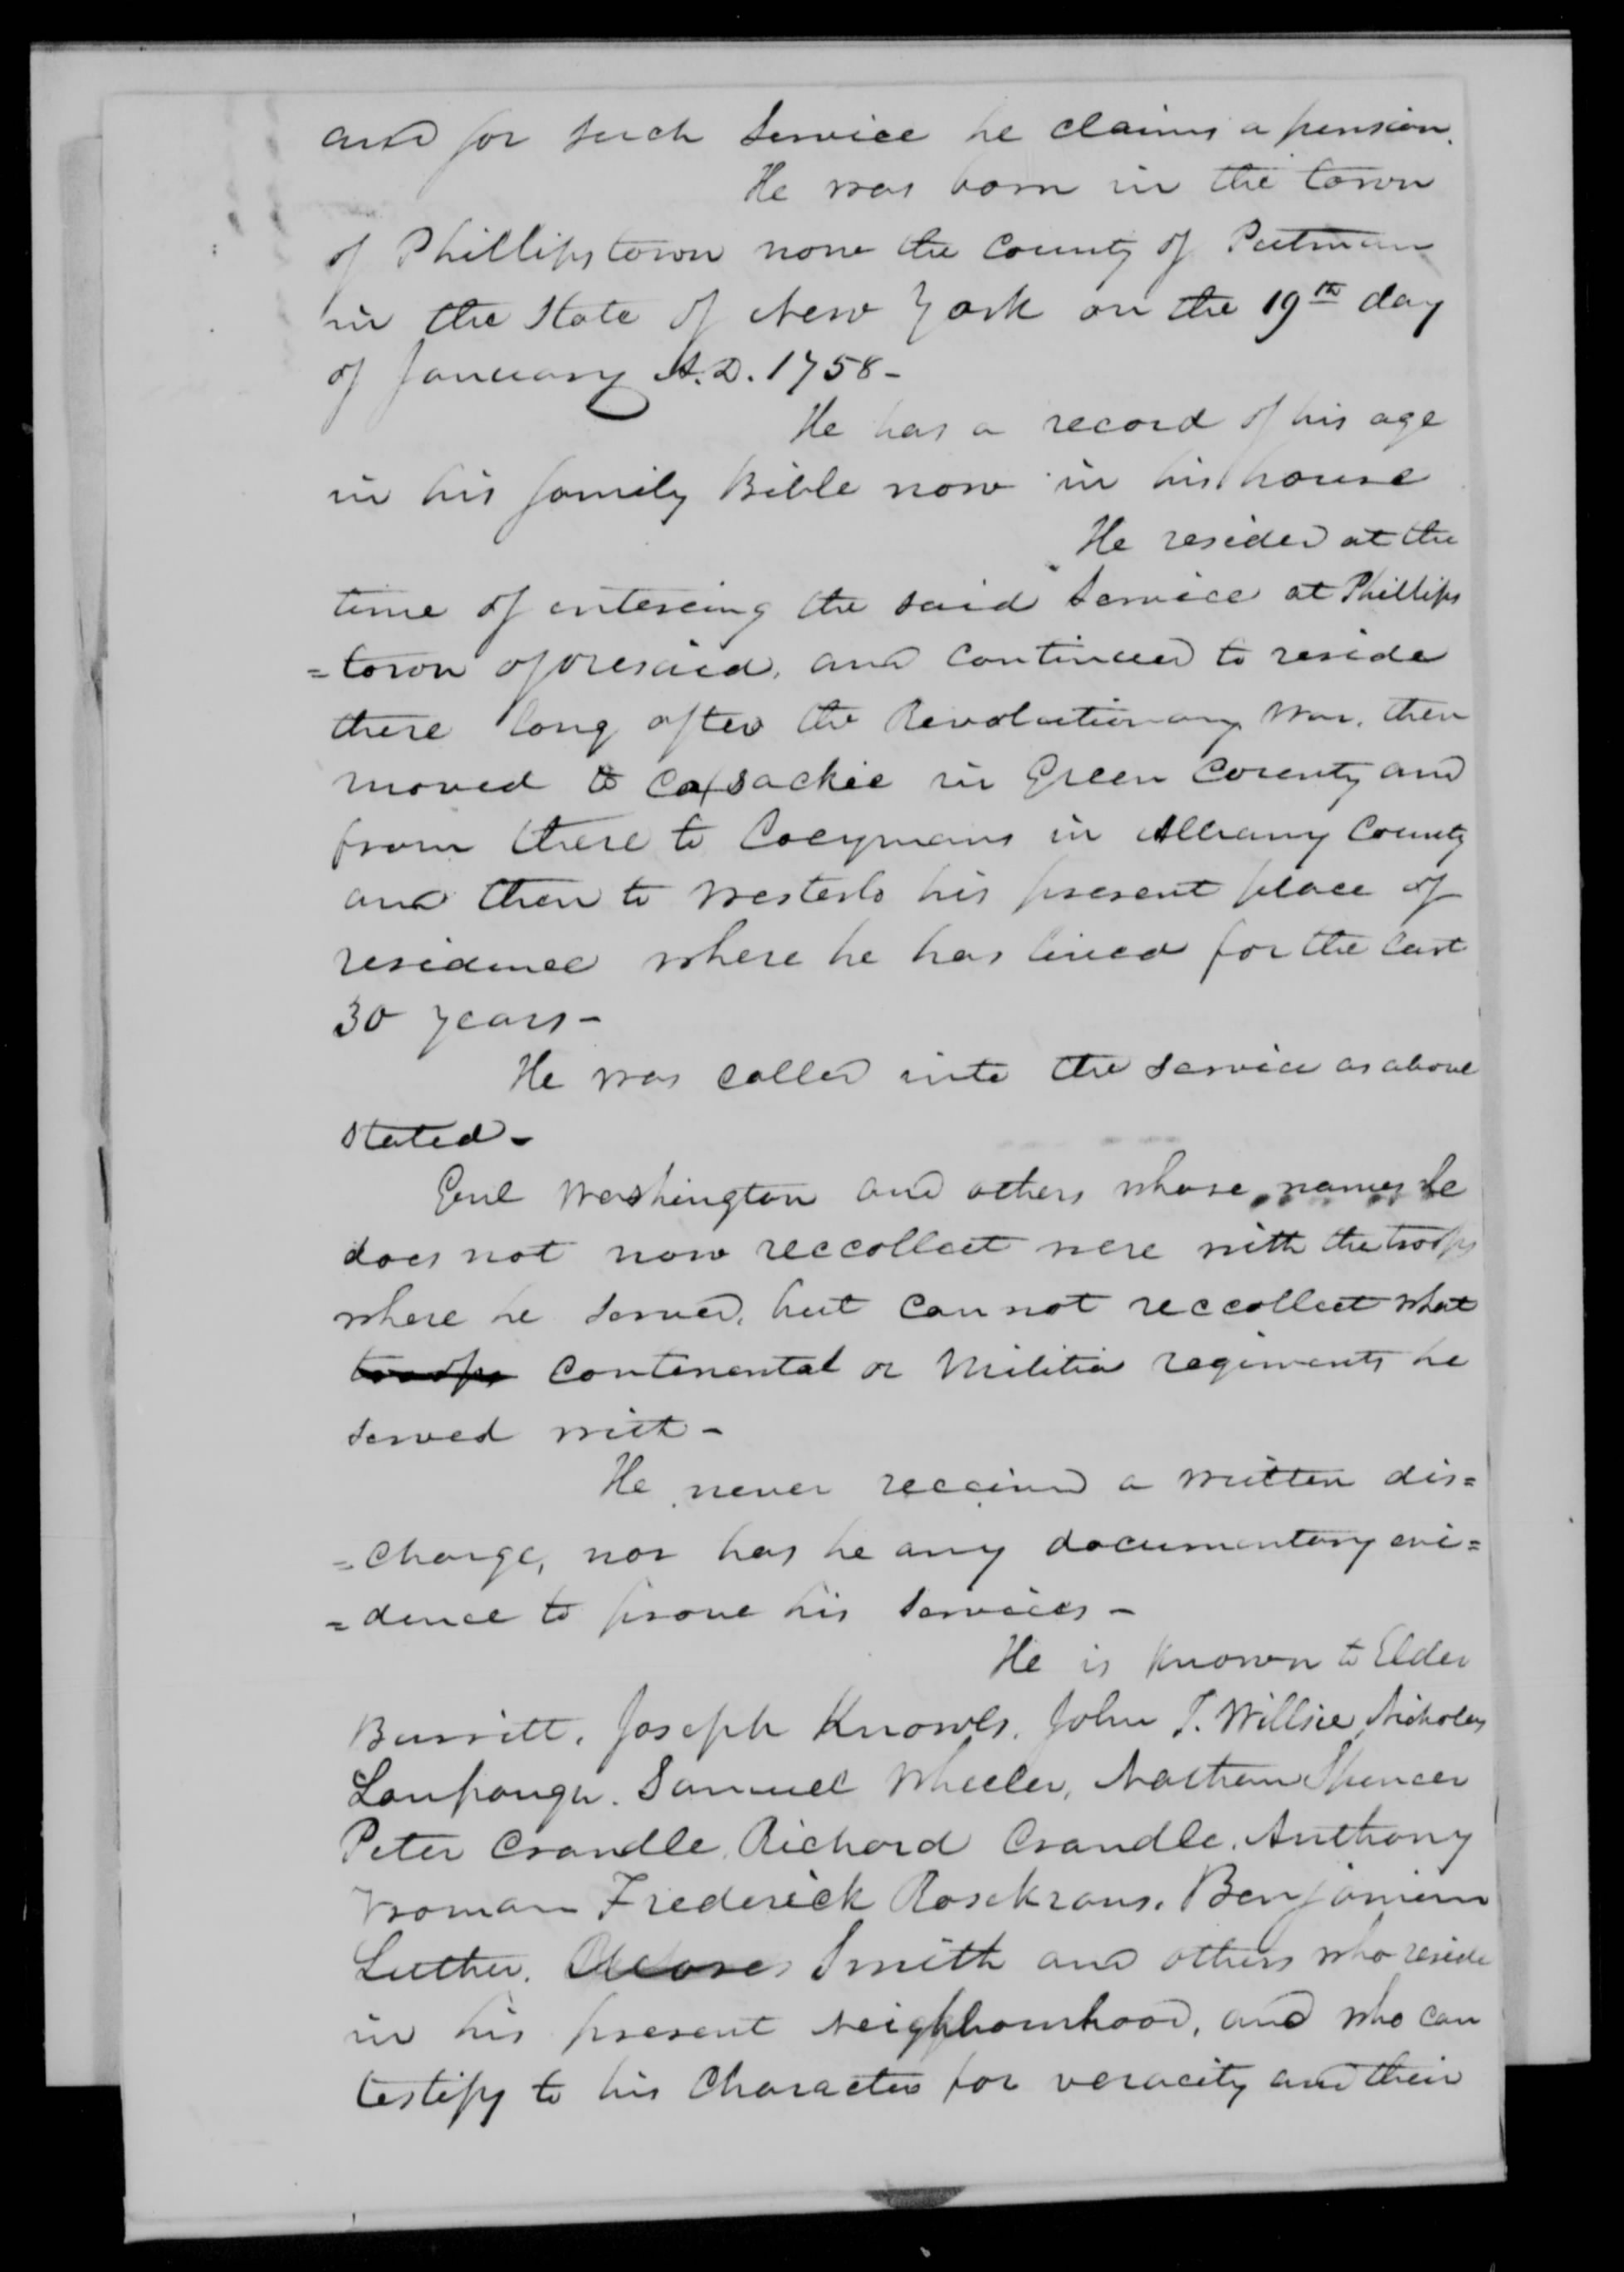 and for such Service he claims a pension.
He was born in the town
of Phillipstown now the County of Putnam
in the State of New York on the 19th day
of January A.D. 1758-
He has a record of his age
in his family Bible now in his house
He resided at the
time of entereing the said Service at Phillips
=town aforesaid, and continued to reside
there long after the Revolutionary War, then
moved to Coxsackie in Green County and
from there to Coeymans in Albany County
and then to Westerlo his present place of
residence where he has lived for the last
30 years-
He was called into the Service as above
Stated-
Genl Washington and others whose names he
does not now reccollect were with the troops
where he Served, but can not reccollect what
troops Continental or Militia regiments he
Served with-
He never received a written dis=
=charge, nor has he any documentary evi=
=dence to prove his Services-
He is known to Elder
Burritt, Joseph Knowls, John T. Willsie Nicholas
Samuel Wheeler, Nathan Spencer
Peter Crandle, Richard Crandle, Anthony
Vroman Frederick Rosekrans, Benjamin
Luther, Smith and others who reside
in his present Neighbourhood, and who can
testify to his Character for veracity and their